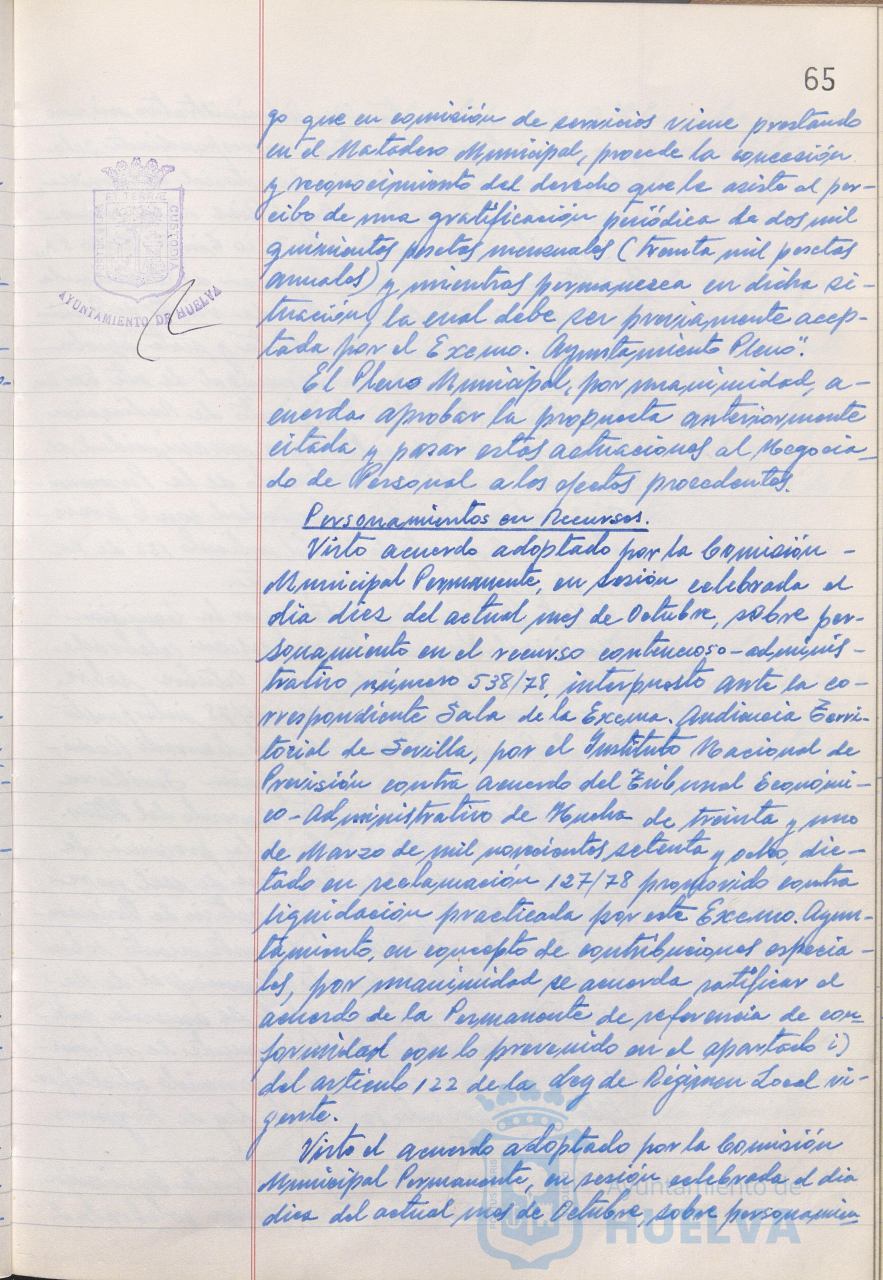 65
PORTUS MARIS
ET TERRAE
CUSTODIA
AYUNTAMIENTO DE HUELVA
go que en comisión de servicios viene prestando
en el Matadero Municipal, procede la concesión
y reconocimiento del derecho que le asiste al per-
cibo de una gratificación periódica de dos mil
quinientas pesetas mensuales (treinta mil pesetas
anuales) y mientras permanezca en dicha si-
tuación, la cual debe ser previamente acep-
tada por el Excmo. Ayuntamiento Pleno".
El Pleno Municipal, por unanimidad, a-
cuerda aprobar la propuesta anteriormente
citada y pasar estas actuaciones al Negocia-
do de Personal a los efectos procedentes.
Personamientos en Recursos.
Visto acuerdo adoptado por la Comisión -
Municipal Permanente, en sesión celebrada el
día diez del actual mes de Octubre, sobre per-
sonamiento en el recurso contencioso-adminis-
trativo número 538/78, interpuesto ante la co-
rrespondiente Sala de la Excma. Audiencia Terri-
torial de Sevilla, por el Instituto Nacional de
Previsión contra acuerdo del Tribunal Económi-
co-Administrativo de Huelva de treinta y uno
de Marzo de mil novecientos setenta y ocho, dic-
tado en reclamación 127/78 promovido contra
liquidación practicada por este Excmo. Ayun-
tamiento, en concepto de contribuciones especia-
les, por unanimidad se acuerda ratificar el
acuerdo de la Permanente de referencia de con-
formidad con lo prevenido en el apartado i)
del artículo 122 de la Ley de Régimen Local vi-
gente.
Visto el acuerdo adoptado por la Comisión
Municipal Permanente, en sesión celebrada el día
diez del actual mes de Octubre, sobre personamien
Ayuntamiento de
HUELVA